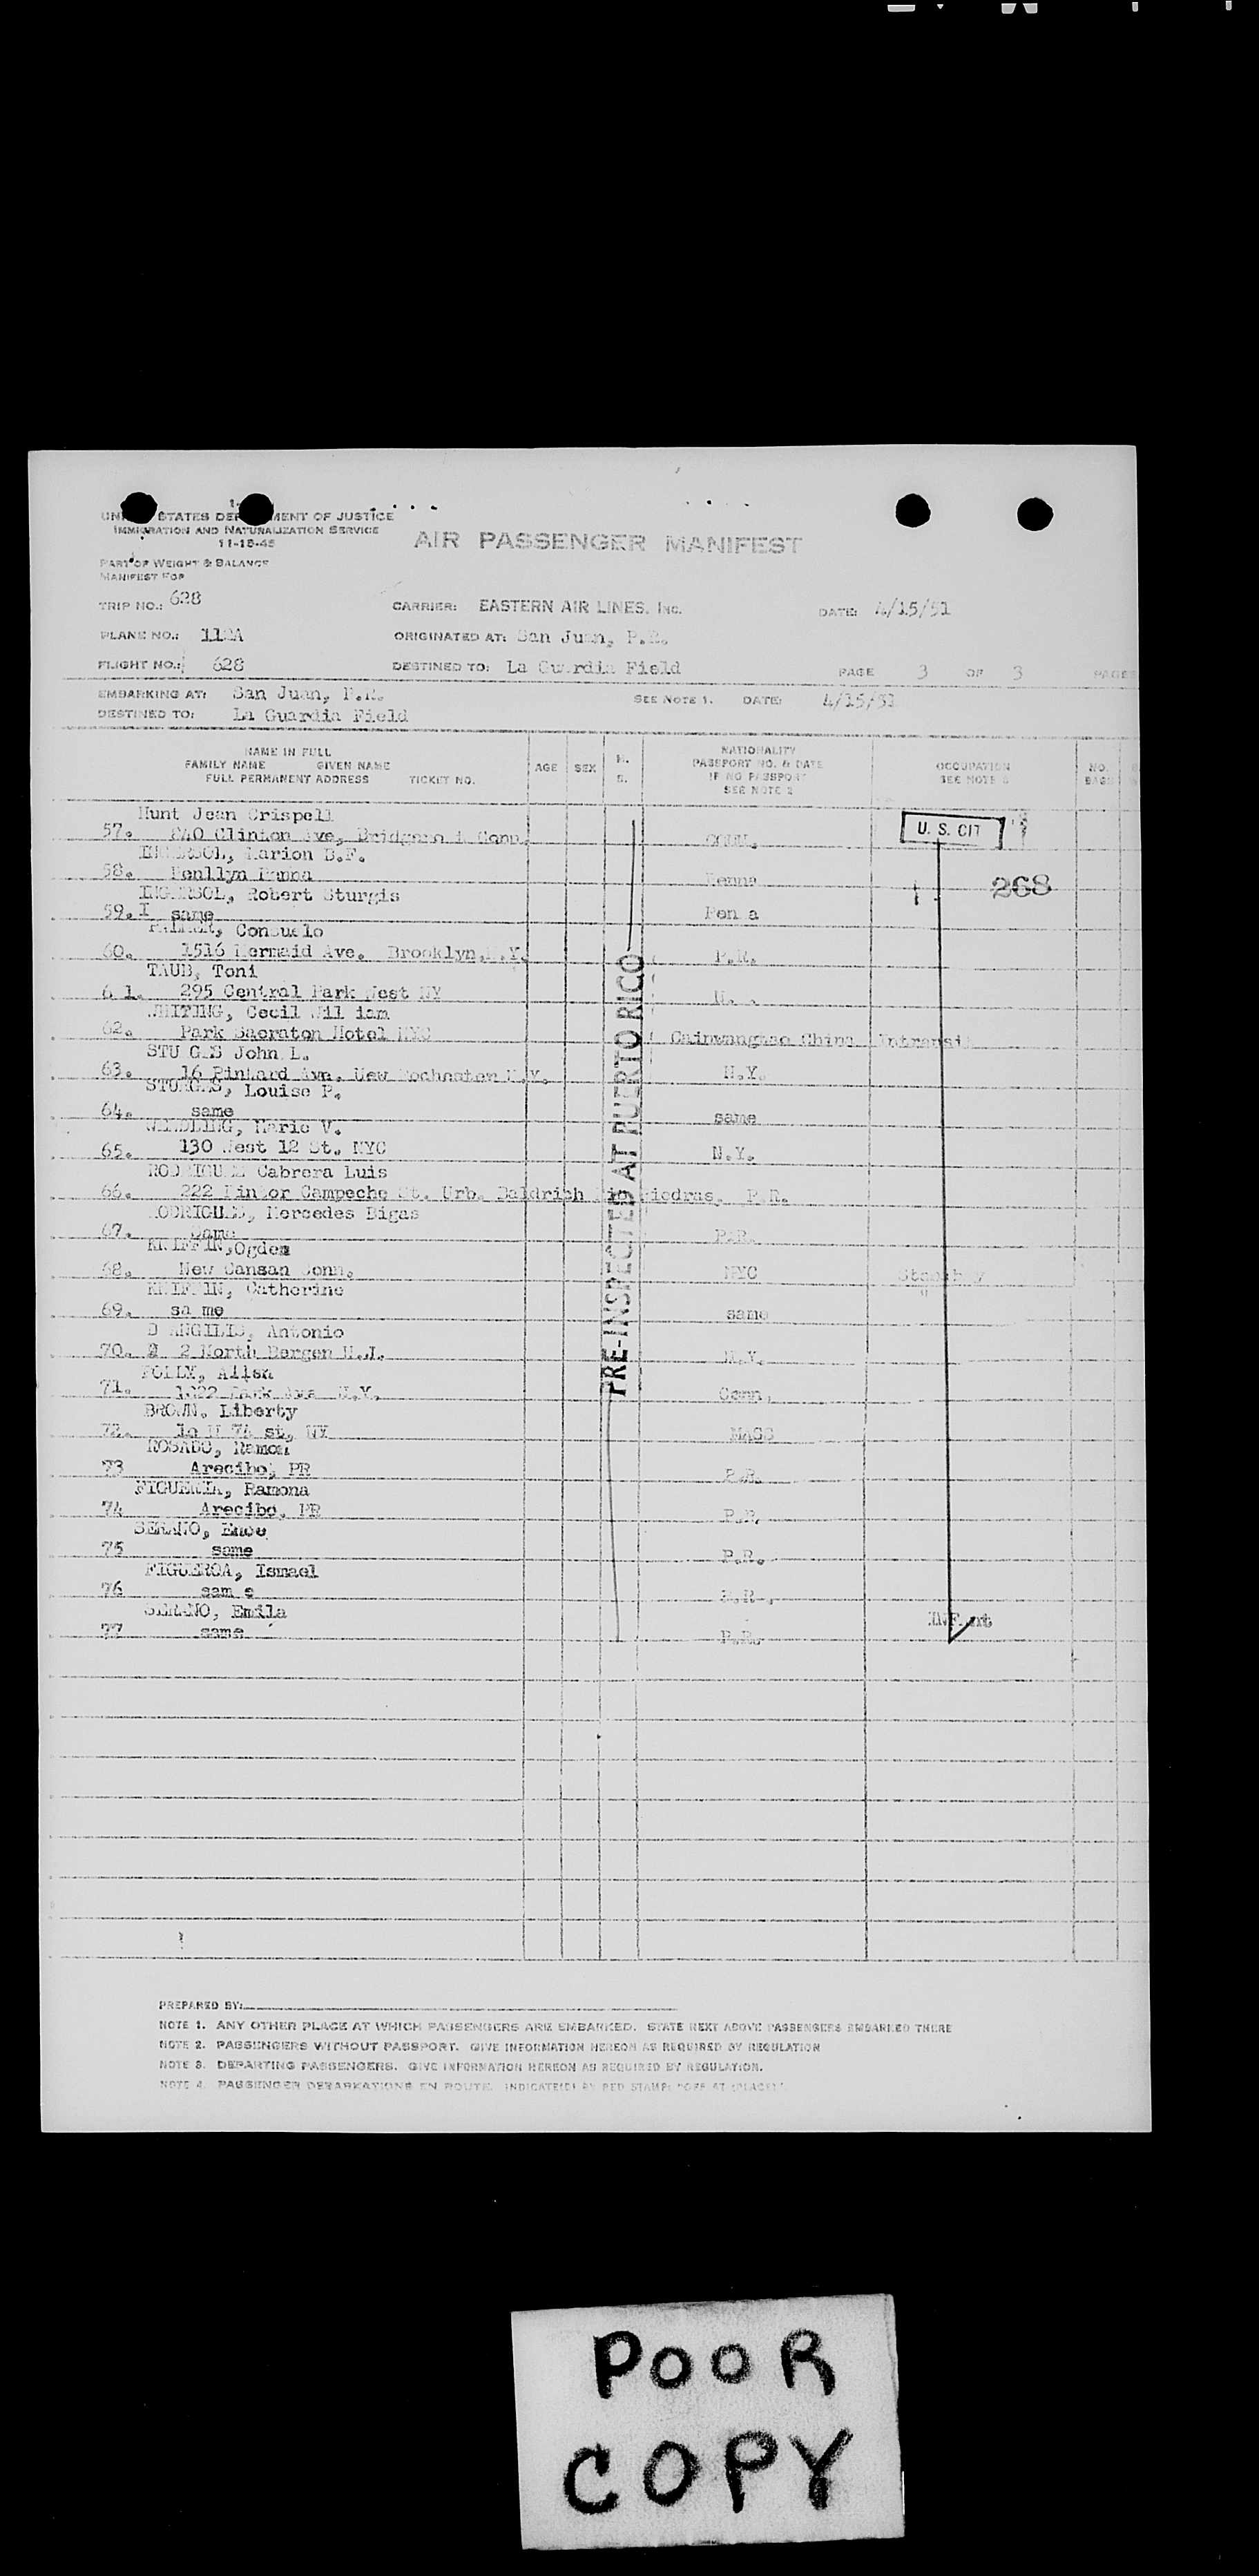 UNITED STATES DEPARTMENT OF JUSTICE
IMMIGRATION AND NATURALIZATION SERVICE
11-15-45
AIR PASSENGER MANIFEST
PART OF WEIGHT & BALANCE
MANIFEST FOR
TRIP NO.: 628 CARRIER: EASTERN AIR LINES, INC. DATE: 4/15/51
PLANE NO.: ORIGINATED AT: San Juan, P.R.
FLIGHT NO.: 628 DESTINED TO: La Guardia Field PAGE 3 OF 3 PAGES
EMBARKING AT: San Juan, P.R. SEE NOTE 1. DATE: 4/15/51
DESTINED TO: La Guardia Field
NAME IN FULL
FAMILY NAME GIVEN NAME
FULL PERMANENT ADDRESS TICKET NO.
AGE SEX
NATIONALITY
PASSPORT NO. & DATE
IF NO PASSPORT
SEE NOTE 2
OCCUPATION
SEE NOTE
NO.
BAGS
Hunt Jean Crispell
57. Clinton Ave, Conn. CONN.
U. S. CIT
INGERSOL, Marion B.F.
58. Penllyn Penna Penna
268
INGERSOL, Robert Sturgis
59. I same Pen a
Consuelo
60. 1516 Mermaid Ave. Brooklyn, N.Y. P.R.
TAUB, Toni
6 1. 295 Central Park West NY
WHITING, Cecil Wil iam
62. Park Hotel NYC China Intransit
STU G.S John L.
63. 16 Ave. New Rochester N.Y. N.Y.
Louise P.
64. same same
Marie V.
65. 130 West 12 St. NYC N.Y.
RODRIGUEZ Cabrera Luis
66. 222 Campeche St. Urb. Baldrich Rio Piedras, P.R.
RODRIGUES, Mercedes Bigas
67. same P.R.
KNIFFIN,Ogden
68. New Cansan Conn. NYC
KNIFFIN, Catherine
69. sa me same "
D ANGILIS, Antonio
70. 2 North Bergen N.J. N.Y.
POLLY, Allen
71. Park Ave N.Y. Conn.
BROWN, Liberty
72. st, NY MASS
ROSADO, Ramon
73 Arecibo, PR P.R.
FIGUEROA, Ramona
74 Arecibo, PR P.R.
SERANO,
75 same P.R.
FIGUEROA, Ismael
76 sam e P.R.
SERANO, Emila
77 same P.R. INFant
PRE-INSPECTED AT PUERTO RICO
PREPARED BY:
NOTE 1. ANY OTHER PLACE AT WHICH PASSENGERS ARE EMBARKED. STATE NEXT ABOVE PASSENGERS EMBARKED THERE
NOTE 2. PASSENGERS WITHOUT PASSPORT. GIVE INFORMATION HEREON AS REQUIRED BY REGULATION
NOTE 3. DEPARTING PASSENGERS. GIVE INFORMATION HEREON AS REQUIRED BY REGULATION.
NOTE 4. PASSENGER DEBARKATIONS EN ROUTE. INDICATE(D) BY RED STAMP: "OFF AT (PLACE)"
POOR
COPY